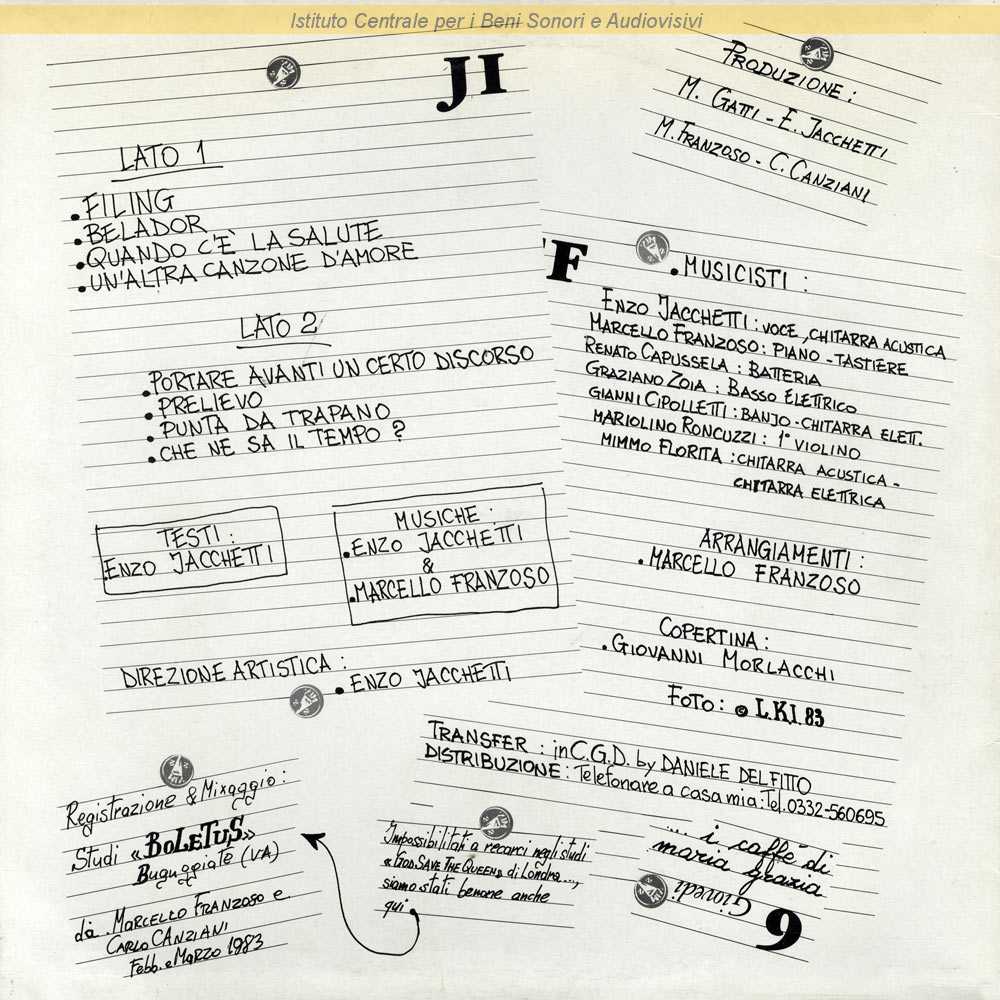 Istituto Centrale per i Beni Sonori e Audiovisivi
JI
LATO 1
• FILING
• BELADOR
• QUANDO C'È LA SALUTE
• UN'ALTRA CANZONE D'AMORE
LATO 2
• PORTARE AVANTI UN CERTO DISCORSO
• PRELIEVO
• PUNTA DA TRAPANO
• CHE NE SA IL TEMPO ?
TESTI :
• ENZO JACCHETTI
MUSICHE :
• ENZO JACCHETTI
&
• MARCELLO FRANZOSO
DIREZIONE ARTISTICA :
• ENZO JACCHETTI
PRODUZIONE :
M. GATTI - E. JACCHETTI
M. FRANZOSO - C. CANZIANI
F
• MUSICISTI :
ENZO JACCHETTI : VOCE, CHITARRA ACUSTICA
MARCELLO FRANZOSO : PIANO - TASTIERE
RENATO CAPUSSELA : BATTERIA
GRAZIANO ZOIA : BASSO ELETTRICO
GIANNI CIPOLLETTI : BANJO - CHITARRA ELETT.
MARIOLINO RONCUZZI : 1° VIOLINO
MIMMO FLORITA : CHITARRA ACUSTICA -
CHITARRA ELETTRICA
ARRANGIAMENTI :
• MARCELLO FRANZOSO
COPERTINA :
• GIOVANNI MORLACCHI
FOTO : © L.K.I. 83
TRANSFER : in C.G.D. by DANIELE DELFITTO
DISTRIBUZIONE : Telefonare a casa mia : Tel. 0332-560695
Registrazione & Mixaggio :
Studi «BOLETUS»
Buguggiate (VA)
da MARCELLO FRANZOSO e
CARLO CANZIANI
Febb. e MARZO 1983
Impossibilitati a recarci negli studi
«GOD SAVE THE QUEEN» di Londra...,
siamo stati benone anche
qui
... i caffé di
maria grazia
Giovedì
9